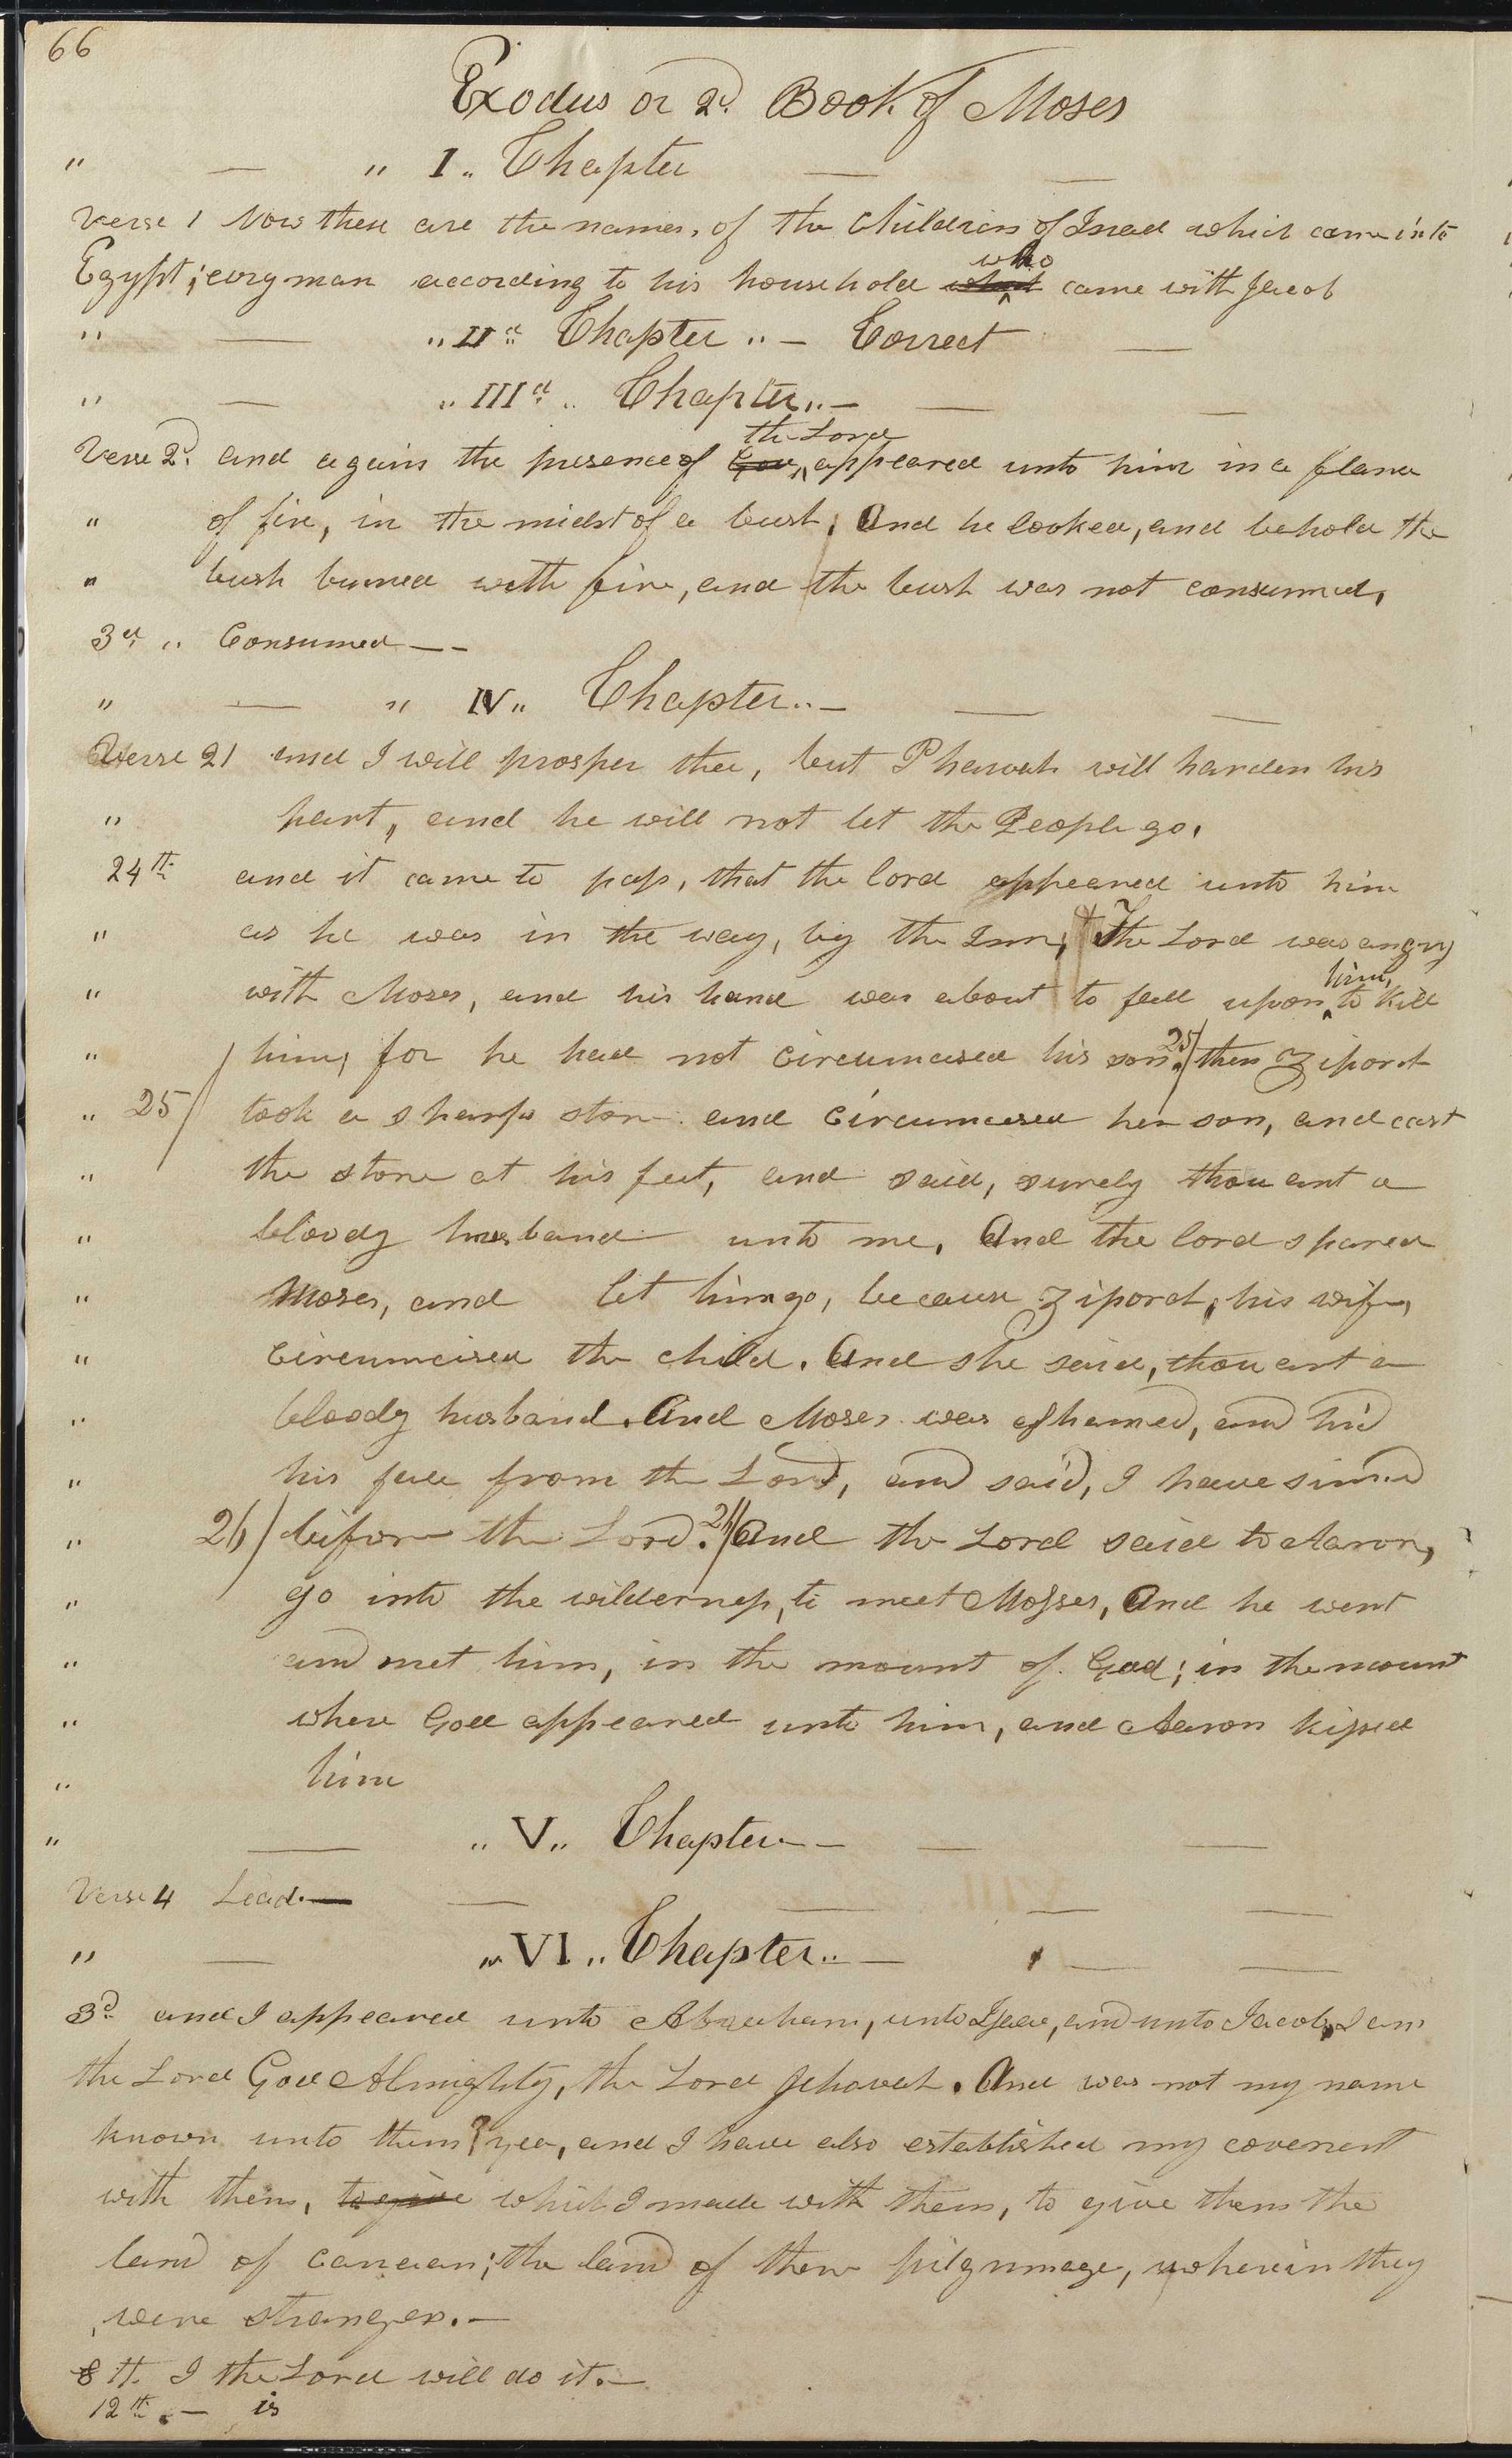 66
Exodus or 2d. Book of Moses
" — " I " Chapter — —
Verse 1 Now these are the names, of the Children of Israel which came into
Egypt; evry man according to his household who came with Jacob
" — " II d " Chapter " — Correct —
" — " III d " Chapter " — — —
Verse 2d. and again the presence of God the Lord appeared unto him in a flame
" of fire, in the midst of a bush; And he looked, and behold the
" bush burned with fire, and the bush was not consumed,
3d " Consumed — -
" — " IV " Chapter " — — —
Verse 21 and I will prosper thee, but Pharoah will harden his
" heart, and he will not let the People go.
24th and it came to pass, that the lord appeared unto him
" as he was in the way, by the Inn; The Lord was angry
" with Moses, and his hand was about to fall upon him, to kill
" him, for he had not circumcised his son. 25/ then Ziporah
" 25/ took a sharp stone and circumcised her son, and cast
" the stone at his feet, and said, surely thou art a
" bloody husband unto me. And the lord spared
" Moses, and let him go, because Ziporah, his wife,
" circumcised the child. And she said, thou art a
" bloody husband. And Moses was ashamed, and hid
" his face from the Lord, and said, I have sinned
" 26/ before the Lord. 26/ And the Lord said to Aaron,
" go into the wilderness, to meet Mosses, And he went
" and met him, in the mount of God; in the mount
" where God appeared unto him, and Aaron kissed
" him
" — " V " Chapter — — —
Verse 4 Lead — — — — —
" — " VI " Chapter " — — —
3d. and I appeared unto Abraham, unto Isaac, and unto Jacob, I am
the Lord God Almighty, the Lord Jehovah. And was not my name
known unto them? yea, and I have also established my covenent
with them, to give which I made with them, to give them the
land of canaan; the land of their pilgrimage, wherein they
were strangers. —
8th. I the Lord will do it. —
12th. — is